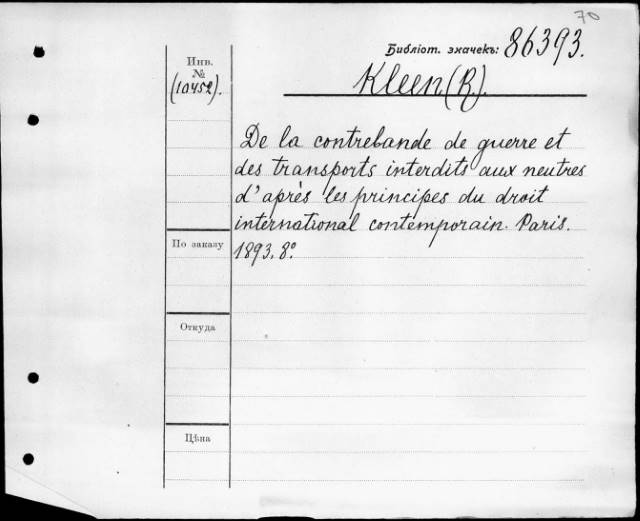 70
Библіот. значекъ: 86393.
Инв.
№
(10452).
Kleen (R).
De la contrebande de guerre et
des transports interdits aux neutres
d'après les principes du droit
international contemporain. Paris.
1893. 8º
По заказу
Откуда
Цѣна